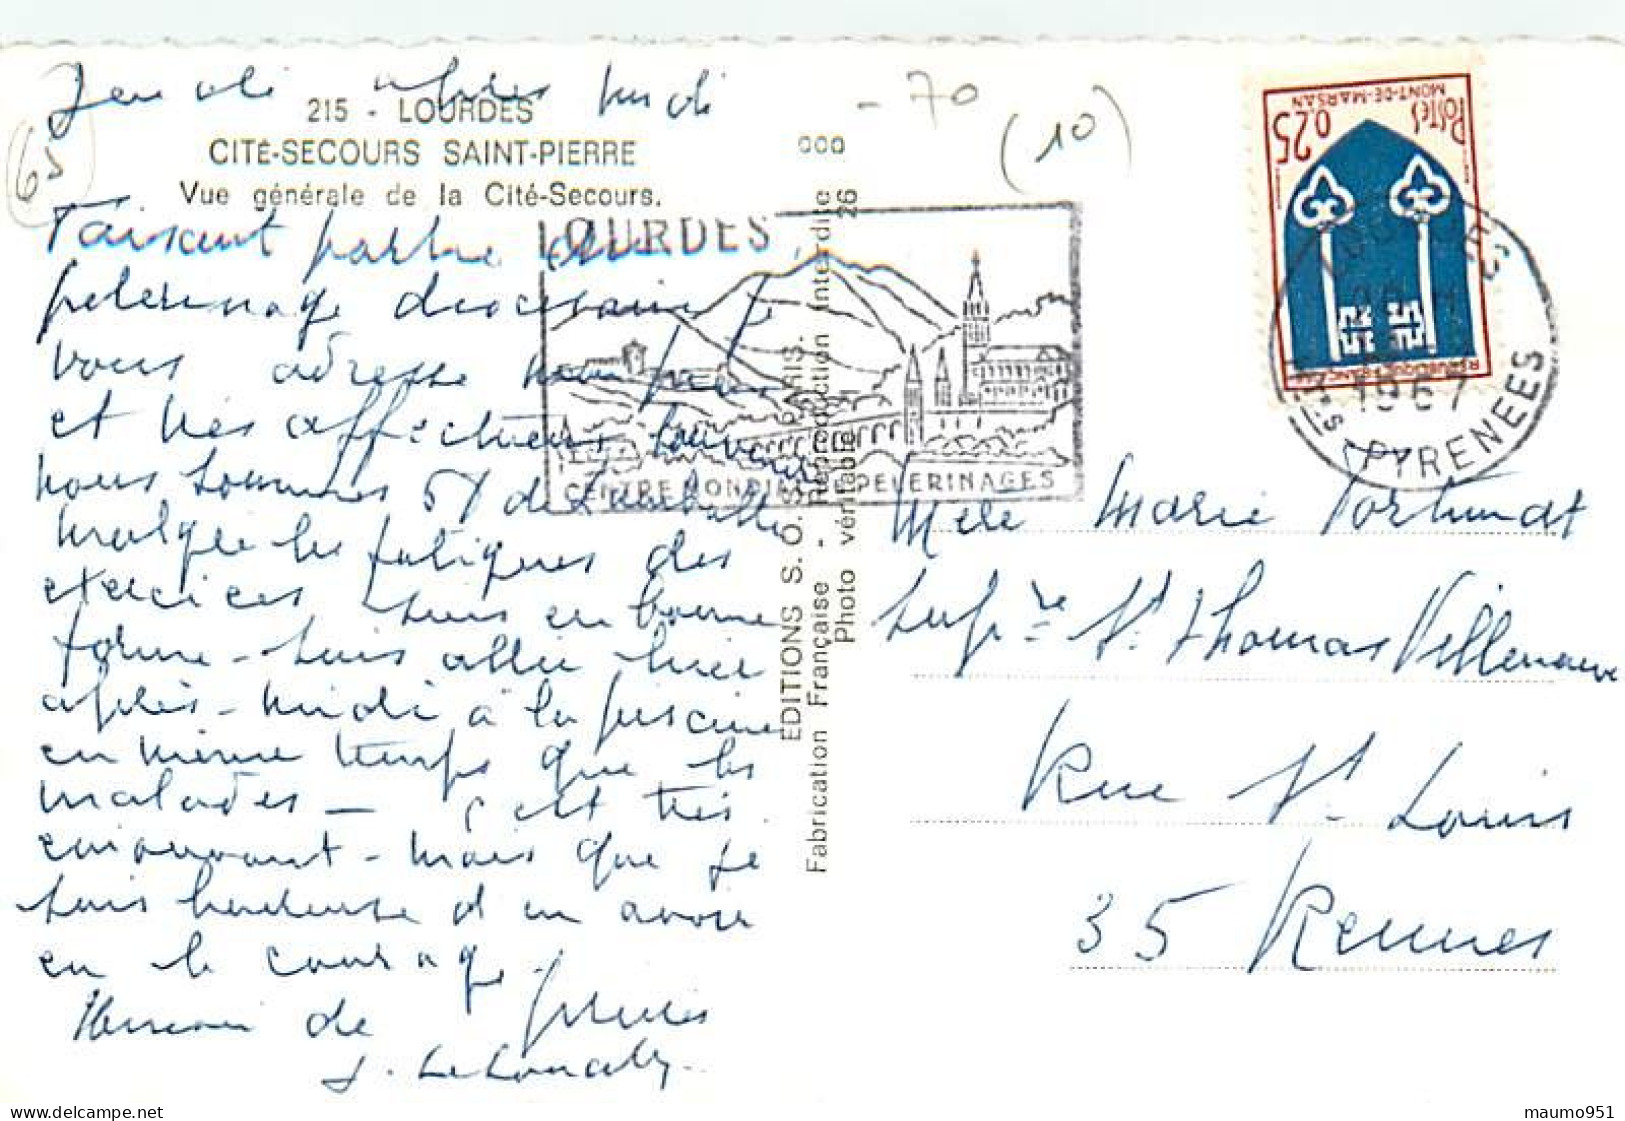 Jeudi après midi
215 - LOURDES
CITÉ-SECOURS SAINT-PIERRE
Vue générale de la Cité-Secours.
Faisant partie du
pèlerinage diocésain je
vous adresse
et très affectueux souvenir
nous sommes 51 de Lamballe
malgré les fatigues des
exercices suis en bonne
forme - suis allée hier
après-midi à la piscine
en même temps que les
malades - c'est très
émouvant - mais que je
suis heureuse d'en avoir
eu le courage.
de prières
(65)
- 70
(10)
000
26
EDITIONS S.O.S. PARIS.
Fabrication Française - Reproduction interdite
Photo véritable
LOURDES
CENTRE MONDIAL DE PELERINAGES
POSTES
0,25
MONT-DE-MARSAN
REPUBLIQUE FRANCAISE
LOURDES
1967
Htes PYRENEES
Mère Marie
Supre St Thomas Villeneuve
Rue St Louis
35 Rennes
maumo951